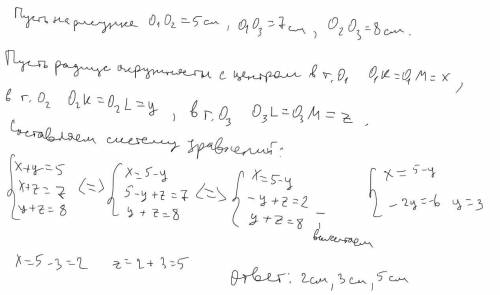 Пусть на рисунке O₁O₂ = 5 см, O₁O₃ = 7 см, O₂O₃ = 8 см.
Пусть радиус окружности с центром в т. O₁ O₁K = O₁M = x,
в т. O₂ O₂K = O₂L = y, в т. O₃ O₃L = O₃M = z.
Составляем систему уравнений:
{x+y=5 {x=5-y {x=5-y {x=5-y
{x+z=7 <=> {5-y+z=7 <=> {-y+z=2 {-2y=-6 y=3
{y+z=8 {y+z=8 {y+z=8 -
вычитаем
x=5-3=2 z=2+3=5 Ответ: 2 см, 3 см, 5 см